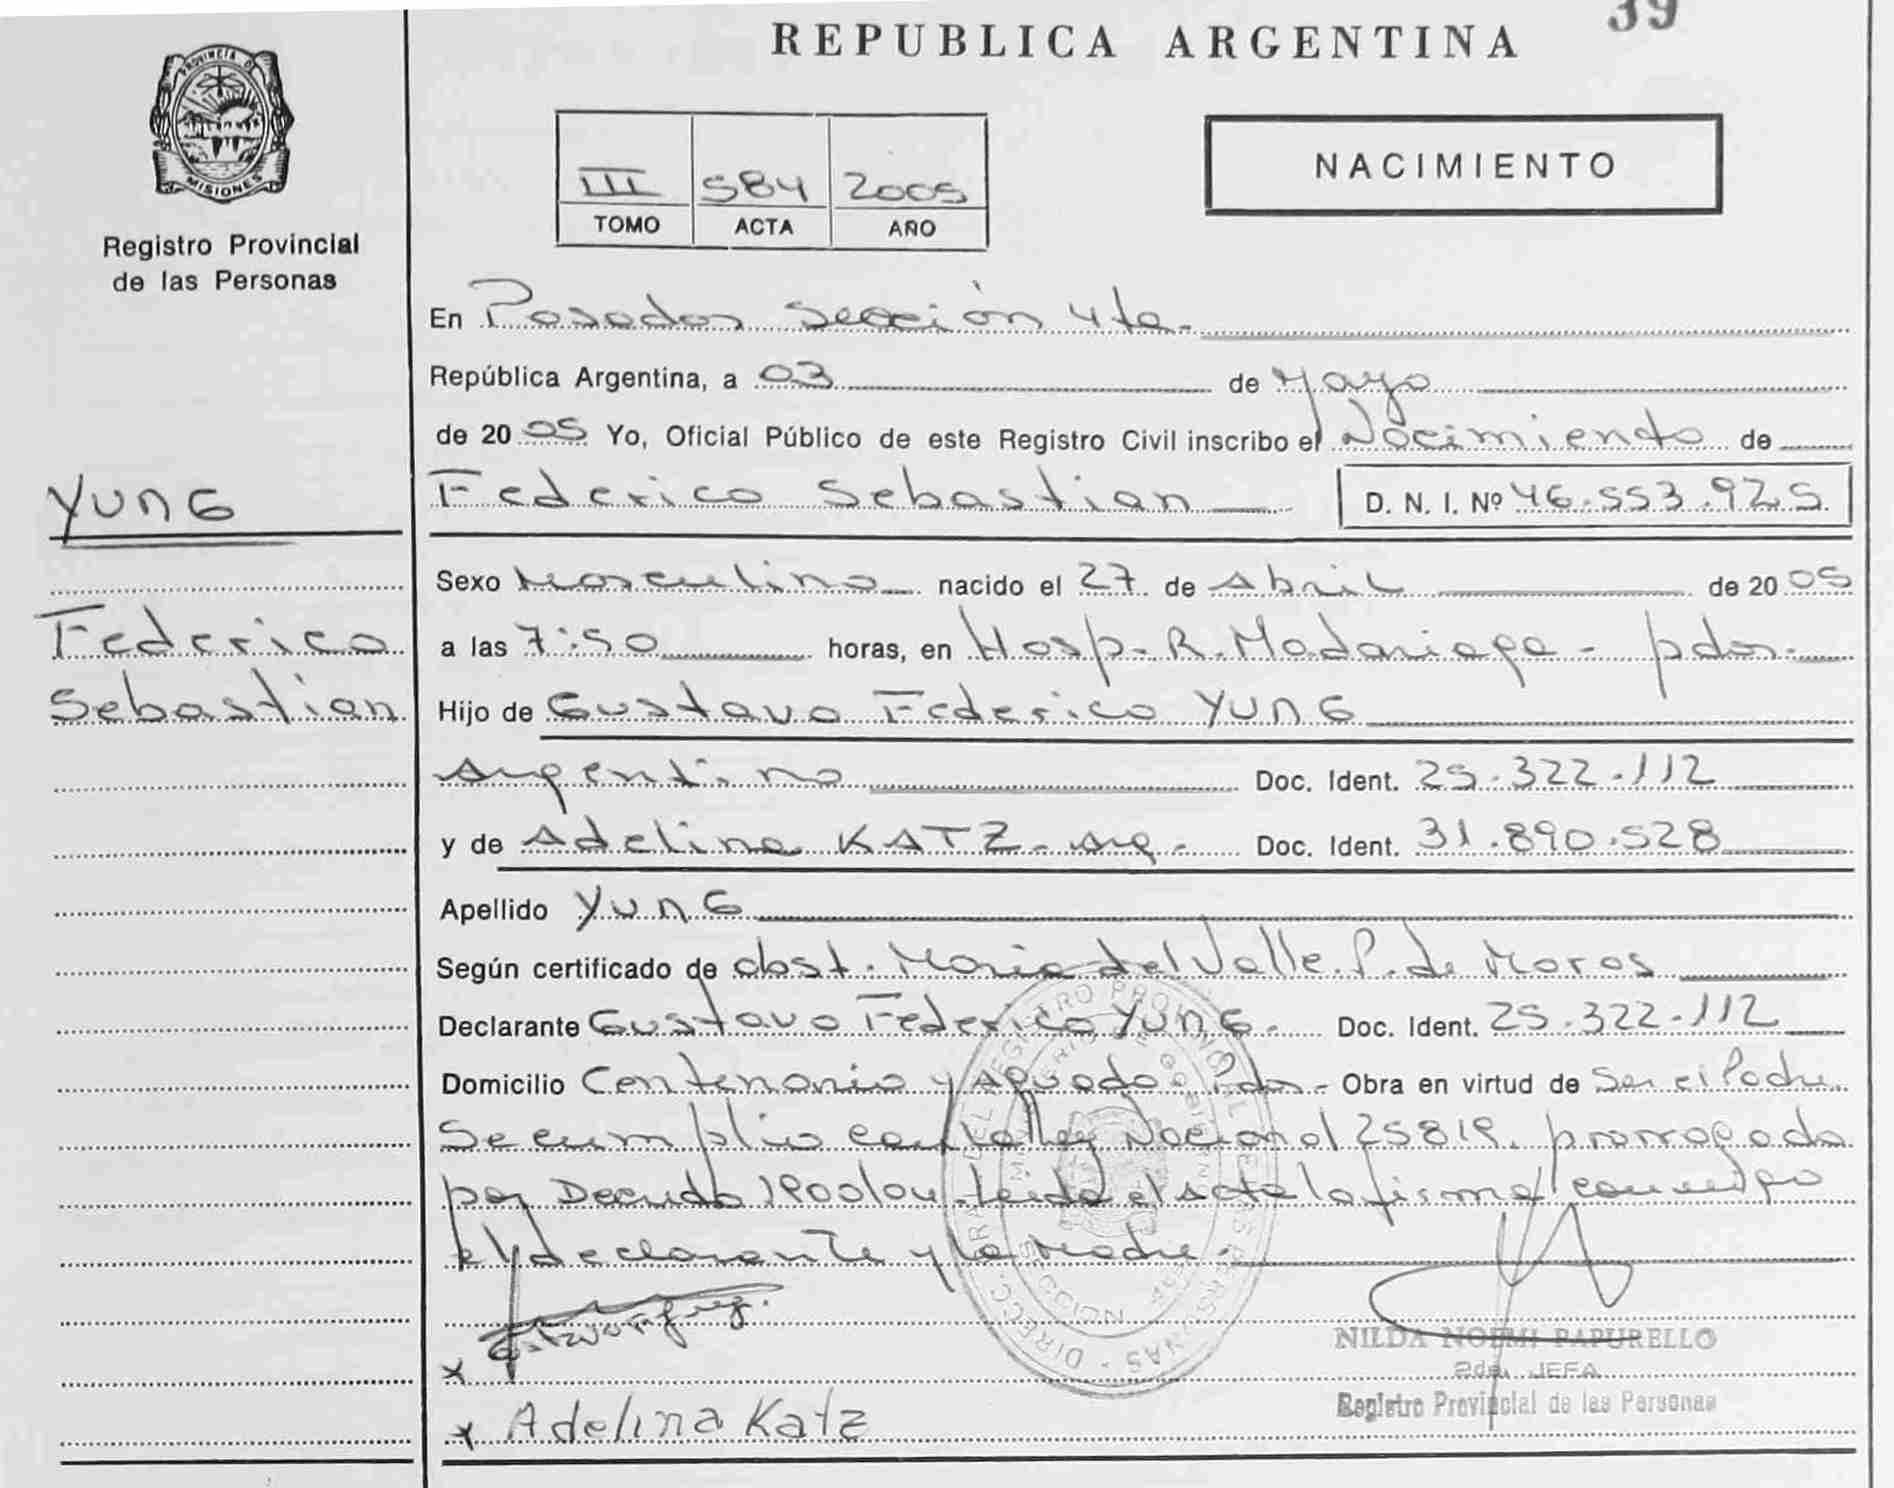 39
REPUBLICA ARGENTINA
PROVINCIA D MISIONES
Registro Provincial
de las Personas
III 584 2005
TOMO ACTA AÑO
NACIMIENTO
En Posadas Sección 4ta.
República Argentina, a 03 de Mayo
de 2005 Yo, Oficial Público de este Registro Civil inscribo el Nacimiento de
YUNG
Federico Sebastian D. N. I. Nº 46.553.925
Sexo Masculino nacido el 27 de Abril de 2005
Federico
a las 7:50 horas, en Hosp. R. Madariaga - pdas.
Sebastian
Hijo de Gustavo Federico YUNG
Argentino Doc. Ident. 25.322.112
y de Adelina KATZ - Arg. - Doc. Ident. 31.890.528
Apellido YUNG
Según certificado de obst. Maria del Valle P. de Moros
Declarante Gustavo Federico YUNG. Doc. Ident. 25.322.112
Domicilio Centenario y Aguado - Pdas - Obra en virtud de Ser el Padre
Se cumplio con la ley Nacional 25819. prorrogada
por Decreto 1900/04. Leida el acta la firma conmigo
el declarante y la Madre -
x
NILDA NOEMI PAPURELLO
2da. JEFA
Registro Provincial de las Personas
x Adelina Katz